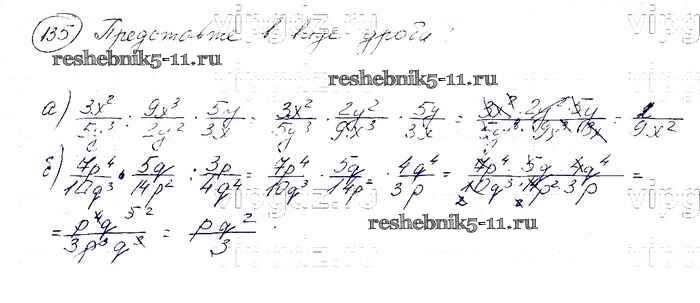 135 Представьте в виде дроби:
reshebnik5-11.ru.
reshebnik5-11.ru
а) 3x²/5y³ : 9x³/2y² · 5y/3x = 3x²/5y³ · 2y²/9x³ · 5y/3x = 3x² · 2y² · 5y/5y³ · 9x³ · 3x = 2/9x²
б) 7p⁴/10q³ · 5q/14p² : 3p/4q⁴ = 7p⁴/10q³ · 5q/14p² · 4q⁴/3p = 7p⁴ · 5q · 4q⁴/10q³ · 14p² · 3p =
= p⁴q⁵ ²/3p³q³ = pq²/3
reshebnik5-11.ru